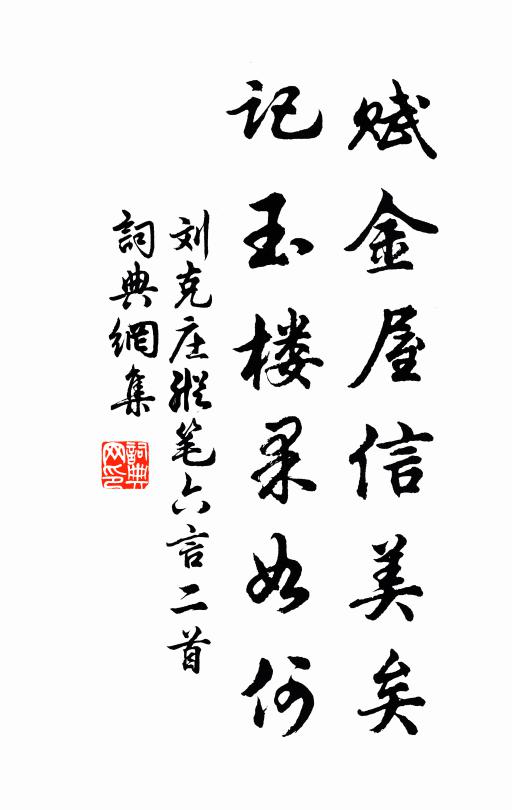 赋金屋信美矣
记玉楼果如何
刘克庄纵笔六言二首
詞典網集
詞典网印